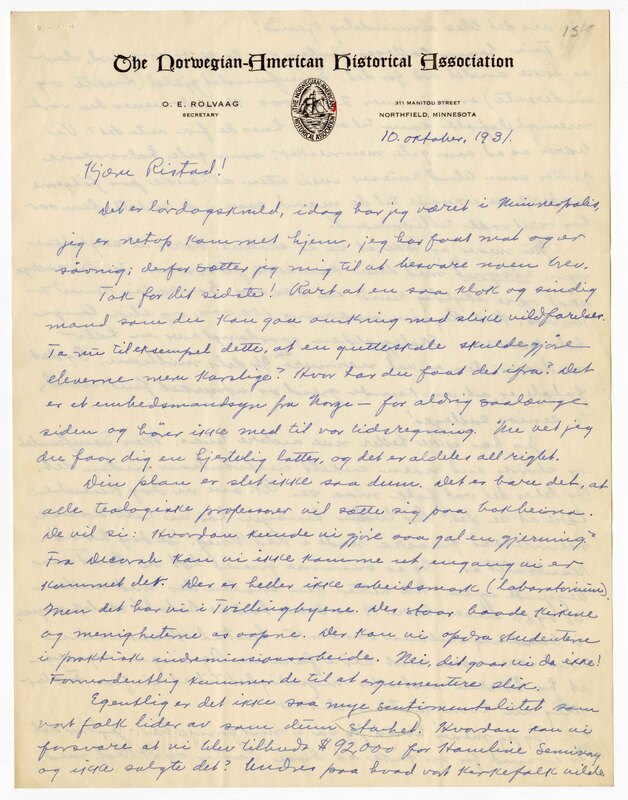 15
The Norwegian-American Historical Association
O. E. ROLVAAG
SECRETARY
THE NORWEGIAN-AMERICAN HISTORICAL ASSOCIATION
311 MANITOU STREET
NORTHFIELD, MINNESOTA
10. oktober, 1931.
Kjære Ristad!
Det er lørdagskveld, idag har jeg været i Minneapolis,
jeg er netop kommet hjem, jeg har faat mat og er
søvnig; derfor sætter jeg mig til at besvare noen brev.
Tak for dit sidste! Rart at en saa klok og sindig
mand som du kan gaa omkring med slike vildfarelser.
Ta nu tileksempel dette, at en gutteskole skulde gjøre
eleverne mere karslige? Hvor har du faat det ifra? Det
er et embedsmandsyn fra Norge — for aldrig saalænge
siden og hører ikke med til vor tidsregning. Nu vet jeg
du faar dig en hjertelig latter, og det er aldeles all right.
Din plan er slet ikke saa dum. Det er bare det, at
alle teologiske professorer vil sætte sig paa bakbeina.
De vil si: Hvordan kunde vi gjøre saa gal en gjerning?
Fra Decorah kan vi ikke komme ut, engang vi er
kommet det. Der er heller ikke arbeidsmark (laboratorium).
Men det har vi i Tvillingbyene. Der staar baade kirkene
og menigheterne os aapne. Der kan vi opdra studentene
i praktisk indremissionsarbeide. Nei, dit gaar vi da ikke!
Formodentlig kommer de til at argumentere slik.
Egentlig er det ikke saa mye sentimentalitet som
vort folk lider av som dum stahet. Hvordan kan vi
forsvare at vi blev tilbudt $92,000 for Hamline Seminary
og ikke solgte det? Undres paa hvad vort kirkefolk vilde